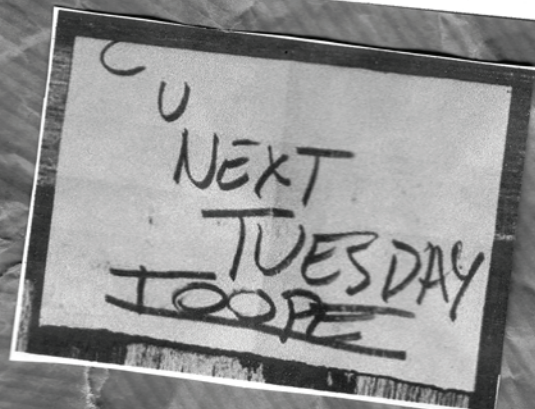 C
U
NEXT
TUESDAY
IOOPE